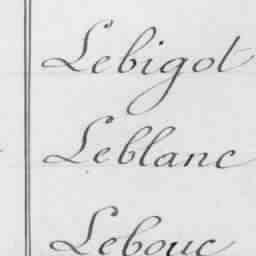 Lebigot
Leblanc
Lebouc